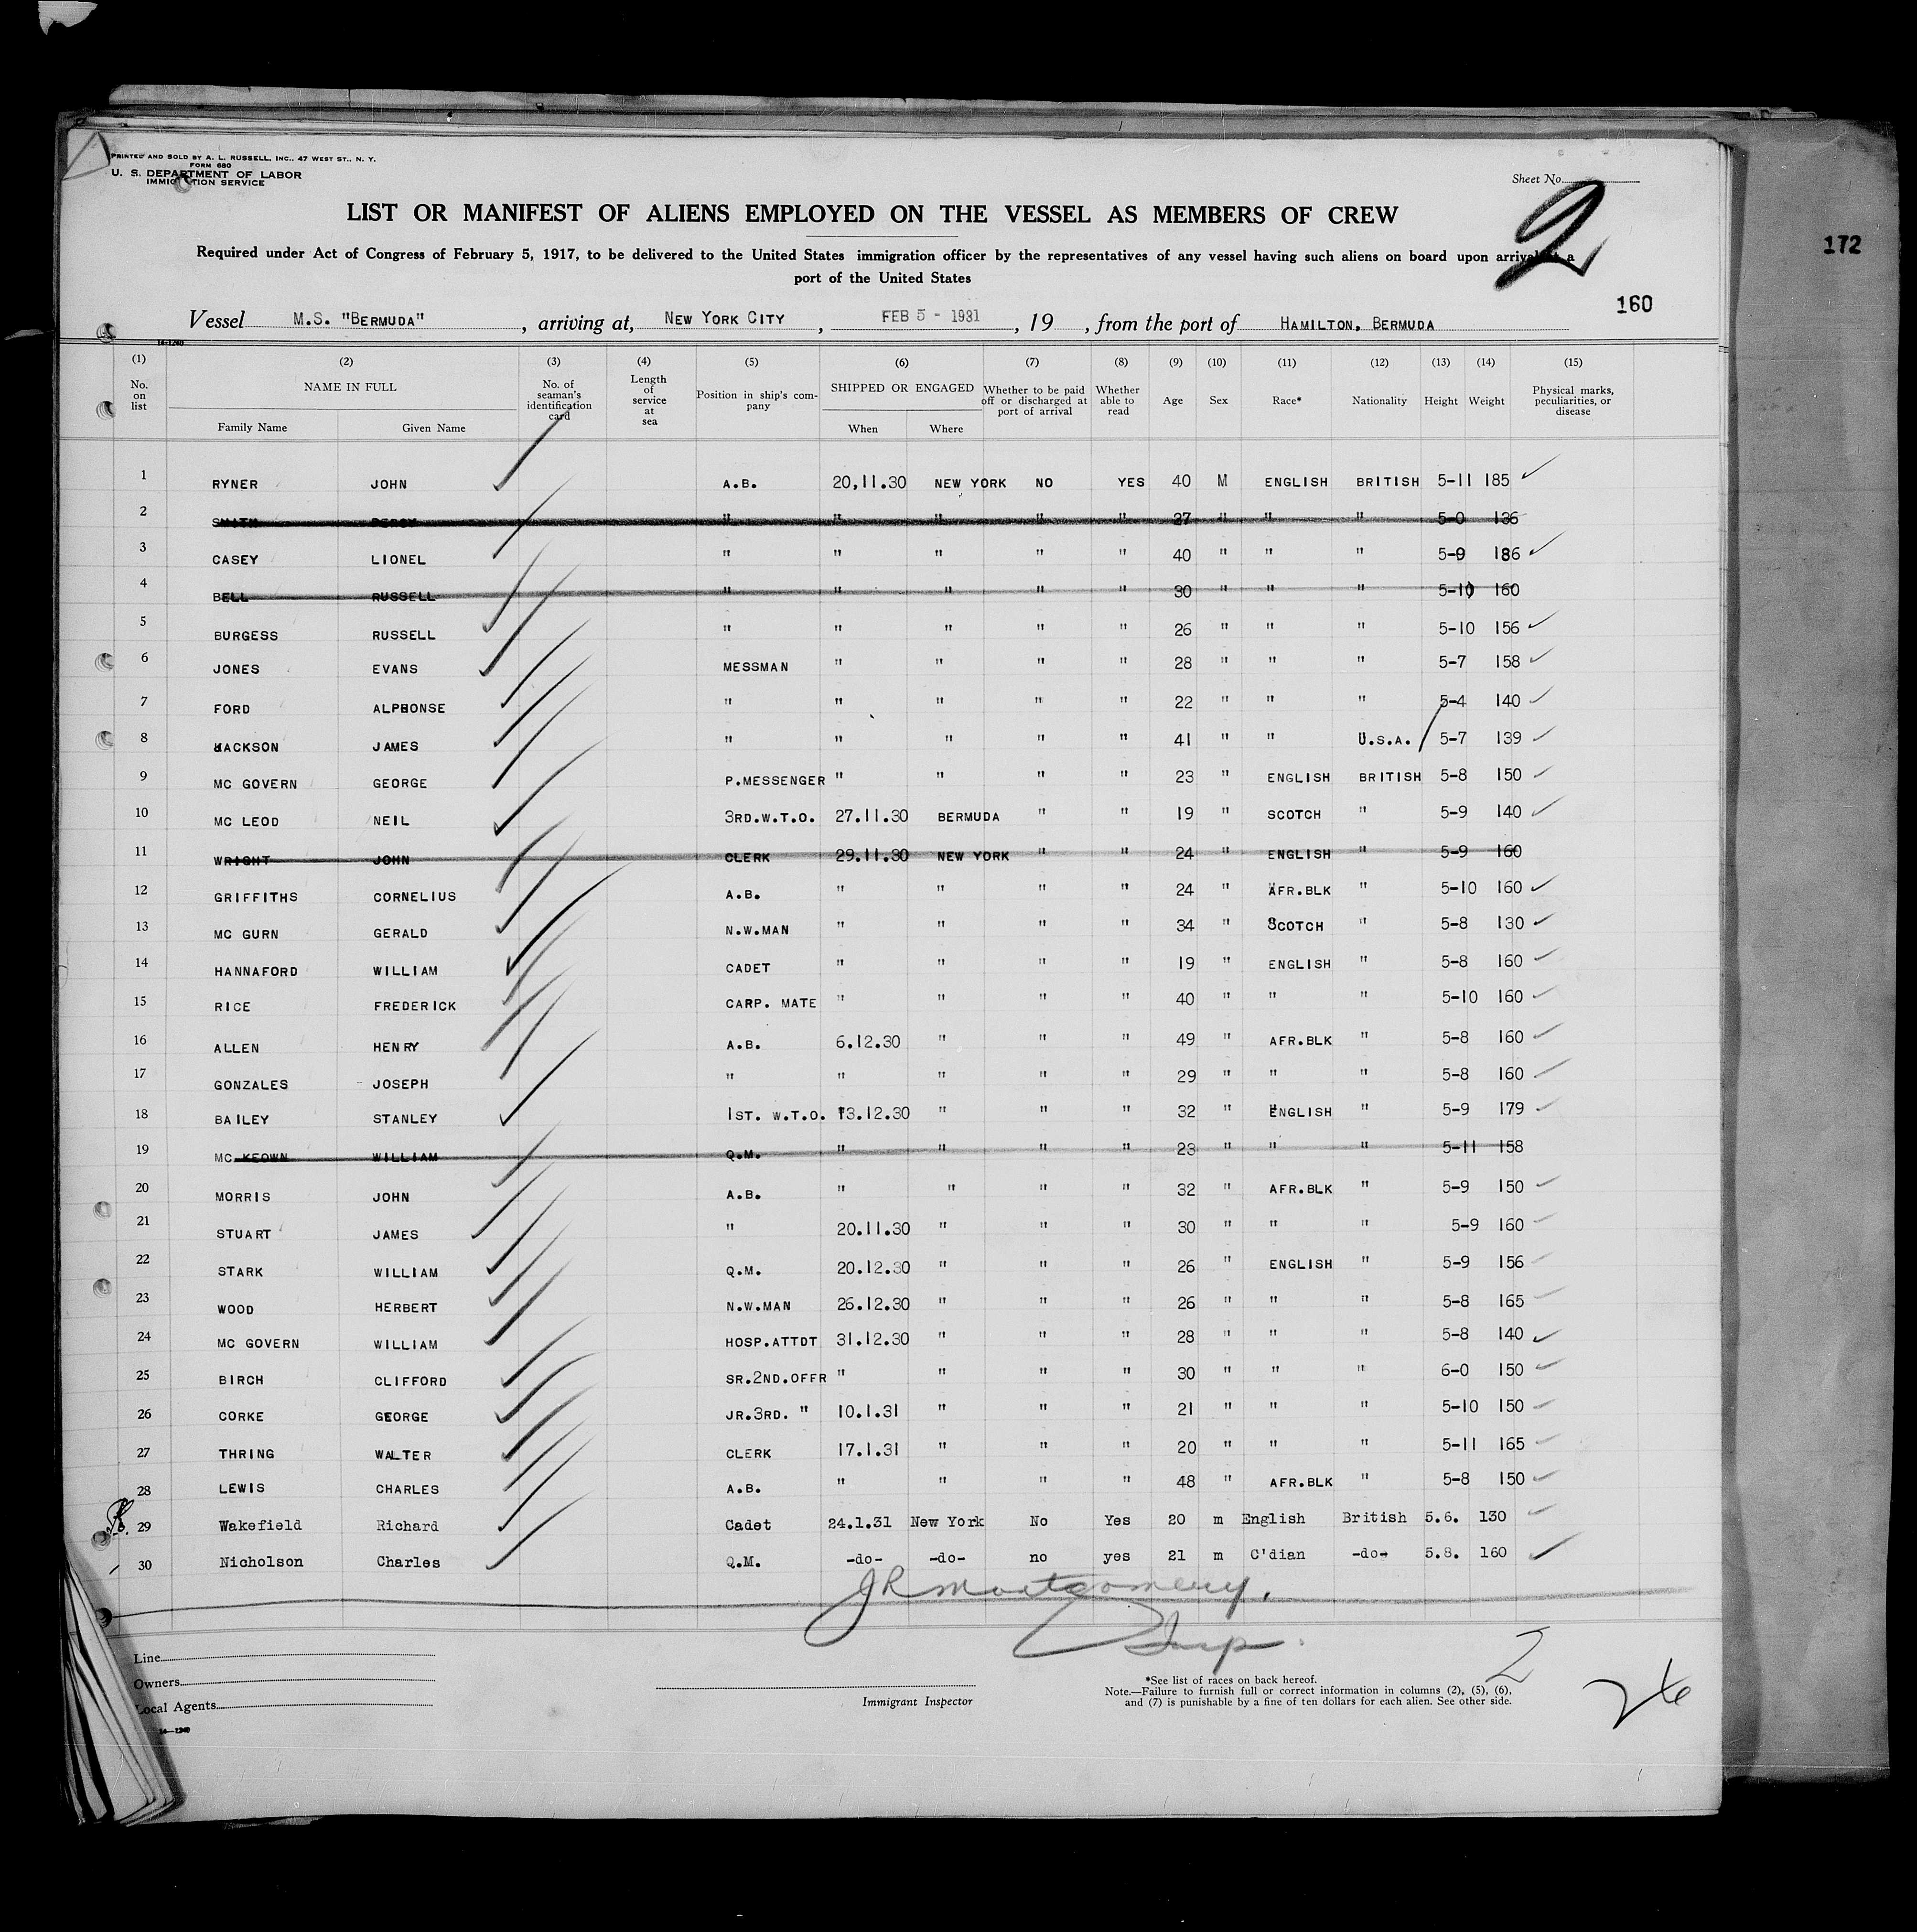 PRINTED AND SOLD BY A. L. RUSSELL, INC., 47 WEST ST., N. Y.
FORM 680
U. S. DEPARTMENT OF LABOR
IMMIGRATION SERVICE
Sheet No. 2
LIST OR MANIFEST OF ALIENS EMPLOYED ON THE VESSEL AS MEMBERS OF CREW
Required under Act of Congress of February 5, 1917, to be delivered to the United States immigration officer by the representatives of any vessel having such aliens on board upon arrival at a
port of the United States
172
160
Vessel M.S. "BERMUDA", arriving at, NEW YORK CITY, FEB 5 - 1931, 19 , from the port of HAMILTON, BERMUDA
14-1240
(1) (2) (3) (4) (5) (6) (7) (8) (9) (10) (11) (12) (13) (14) (15)
No. on list NAME IN FULL Family Name Given Name No. of seaman's identification card Length of service at sea Position in ship's company SHIPPED OR ENGAGED When Where Whether to be paid off or discharged at port of arrival Whether able to read Age Sex Race* Nationality Height Weight Physical marks, peculiarities, or disease
1 RYNER JOHN A.B. 20,11.30 NEW YORK NO YES 40 M ENGLISH BRITISH 5-11 185
2 SMITH PERCY " " " " " 27 " " " 5-0 136
3 CASEY LIONEL " " " " " 40 " " " 5-9 186
4 BELL RUSSELL " " " " " 30 " " " 5-10 160
5 BURGESS RUSSELL " " " " " 26 " " " 5-10 156
6 JONES EVANS MESSMAN " " " " 28 " " " 5-7 158
7 FORD ALPHONSE " " " " " 22 " " " 5-4 140
8 JACKSON JAMES " " " " " 41 " " U.S.A. 5-7 139
9 MC GOVERN GEORGE P.MESSENGER " " " " 23 " ENGLISH BRITISH 5-8 150
10 MC LEOD NEIL 3RD.W.T.O. 27.11.30 BERMUDA " " 19 " SCOTCH " 5-9 140
11 WRIGHT JOHN CLERK 29.11.30 NEW YORK " " 24 " ENGLISH " 5-9 160
12 GRIFFITHS CORNELIUS A.B. " " " " 24 " AFR.BLK " 5-10 160
13 MC GURN GERALD N.W.MAN " " " " 34 " SCOTCH " 5-8 130
14 HANNAFORD WILLIAM CADET " " " " 19 " ENGLISH " 5-8 160
15 RICE FREDERICK CARP. MATE " " " " 40 " " " 5-10 160
16 ALLEN HENRY A.B. 6.12.30 " " " 49 " AFR.BLK " 5-8 160
17 GONZALES JOSEPH " " " " " 29 " " " 5-8 160
18 BAILEY STANLEY 1ST. W.T.O. 13.12.30 " " " 32 " ENGLISH " 5-9 179
19 MC KEOWN WILLIAM Q.M. " " " " 23 " " " 5-11 158
20 MORRIS JOHN A.B. " " " " 32 " AFR.BLK " 5-9 150
21 STUART JAMES " 20.11.30 " " " 30 " " " 5-9 160
22 STARK WILLIAM Q.M. 20.12.30 " " " 26 " ENGLISH " 5-9 156
23 WOOD HERBERT N.W.MAN 26.12.30 " " " 26 " " " 5-8 165
24 MC GOVERN WILLIAM HOSP.ATTDT 31.12.30 " " " 28 " " " 5-8 140
25 BIRCH CLIFFORD SR.2ND.OFFR " " " " 30 " " " 6-0 150
26 CORKE GEORGE JR.3RD. " 10.1.31 " " " 21 " " " 5-10 150
27 THRING WALTER CLERK 17.1.31 " " " 20 " " " 5-11 165
28 LEWIS CHARLES A.B. " " " " 48 " AFR.BLK " 5-8 150
29 Wakefield Richard Cadet 24.1.31 New York No Yes 20 m English British 5.6. 130
30 Nicholson Charles Q.M. -do- -do- no yes 21 m C'dian -do- 5.8. 160
J R Montgomery.
Insp.
Line
Owners
Local Agents
14-1240
Immigrant Inspector
*See list of races on back hereof.
Note.—Failure to furnish full or correct information in columns (2), (5), (6),
and (7) is punishable by a fine of ten dollars for each alien. See other side.
2
26